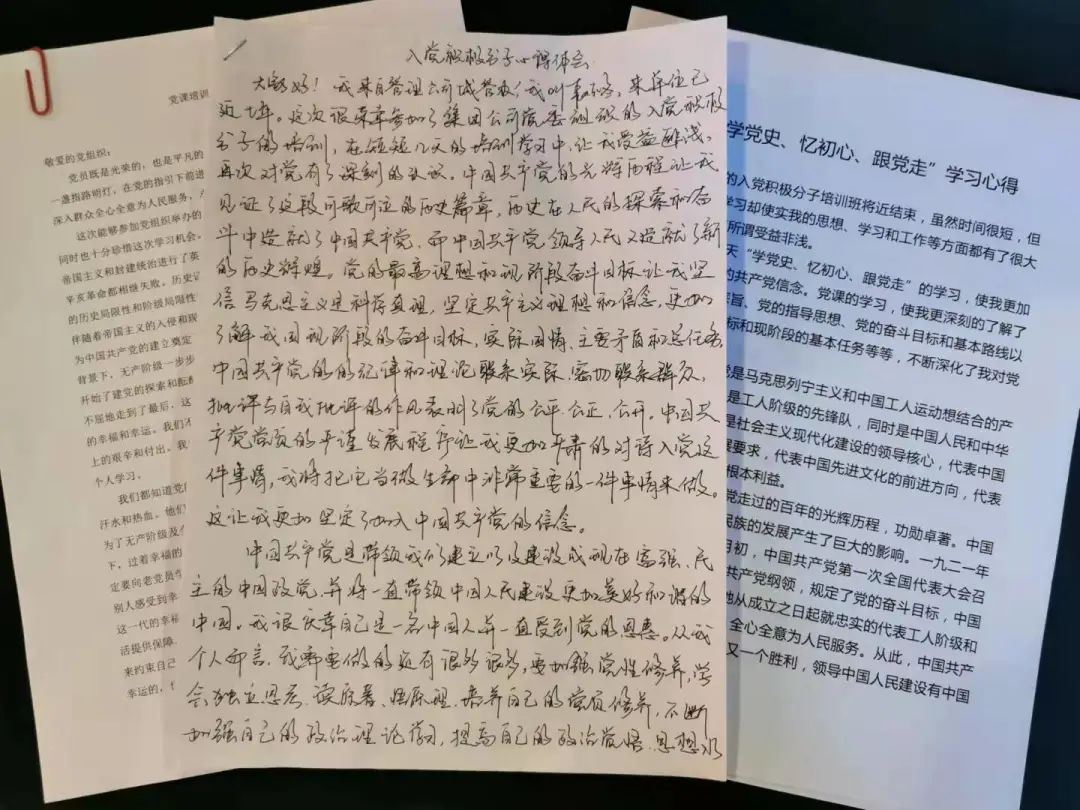 党课培训
敬爱的党组织：
党员既是光荣的，也是平凡的
一盏指路明灯，在党的指引下前进
深入群众全心全意为人民服务，
这次能够参加党组织举办的
同时也十分珍惜这次学习机会。
帝国主义和封建统治进行了英
辛亥革命都相继失败。历史证
的历史局限性和阶级局限性
伴随着帝国主义的入侵和
为中国共产党的建立奠定
背景下，无产阶级一步步
开始了建党的探索和
不屈地走到了最后，这
的幸福和幸运。我们
上的艰辛和付出。我
个人学习。
我们都知道党
汗水和热血，他们
为了无产阶级及
下，过着幸福的
定要向老党员
别人感受到幸
这一代的幸福
活提供保障
来约束自己
幸运的，
入党积极分子心得体会
大家好！我来自管理公司城营部，我叫 来单位已
近七年。这次很荣幸参加了集团公司党委组织的入党积极
分子的培训，在短短几天的培训学习中，让我受益匪浅，
再次对党有了深刻的认识。中国共产党的光辉历程让我
见证了这段可歌可泣的历史篇章，历史在人民的探索和奋
斗中造就了中国共产党，而中国共产党领导人民又造就了新
的历史辉煌。党的最高理想和现阶段奋斗目标让我坚
信马克思主义是科学真理，坚定共产主义理想和信念，更加
了解我国现阶段的奋斗目标，实际国情、主要矛盾和总任务，
中国共产党的的纪律和理论联系实际、密切联系群众，
批评与自我批评的作风表明了党的公平、公正、公开。中国共
产党党员的严谨发展程序让我更加严肃的对待入党这
件事情，我将把它当做生命中非常重要的一件事情来做。
这让我更加坚定了加入中国共产党的信念。
中国共产党是带领我们建立以及建设成现在富强、民
主的中国政党，并将一直带领中国人民建设更加美好和谐的
中国。我很庆幸自己是一名中国人并一直受到党的恩惠。从我
个人而言，我需要做的还有很多很多，要加强党性修养，学
会独立思考、读原著、悟原理、培养自己的党员修养，不断
加强自己的政治理论学习，提高自己的政治觉悟、思想水
学党史、忆初心、跟党走”学习心得
的入党积极分子培训班将近结束，虽然时间很短，但
学习却使实我的思想、学习和工作等方面都有了很大
所谓受益非浅。
天“学党史、忆初心、跟党走”的学习，使我更加
的共产党信念。党课的学习，使我更深刻的了解了
宗旨、党的指导思想、党的奋斗目标和基本路线以
标和现阶段的基本任务等等，不断深化了我对党
党是马克思列宁主义和中国工人运动想结合的产
是工人阶级的先锋队，同时是中国人民和中华
是社会主义现代化建设的领导核心，代表中国
展要求，代表中国先进文化的前进方向，代表
根本利益。
党走过的百年的光辉历程，功勋卓著。中国
民族的发展产生了巨大的影响。一九二一年
月初，中国共产党第一次全国代表大会召
共产党纲领，规定了党的奋斗目标，中国
她从成立之日起就忠实的代表工人阶级和
全心全意为人民服务。从此，中国共产
又一个胜利，领导中国人民建设有中国